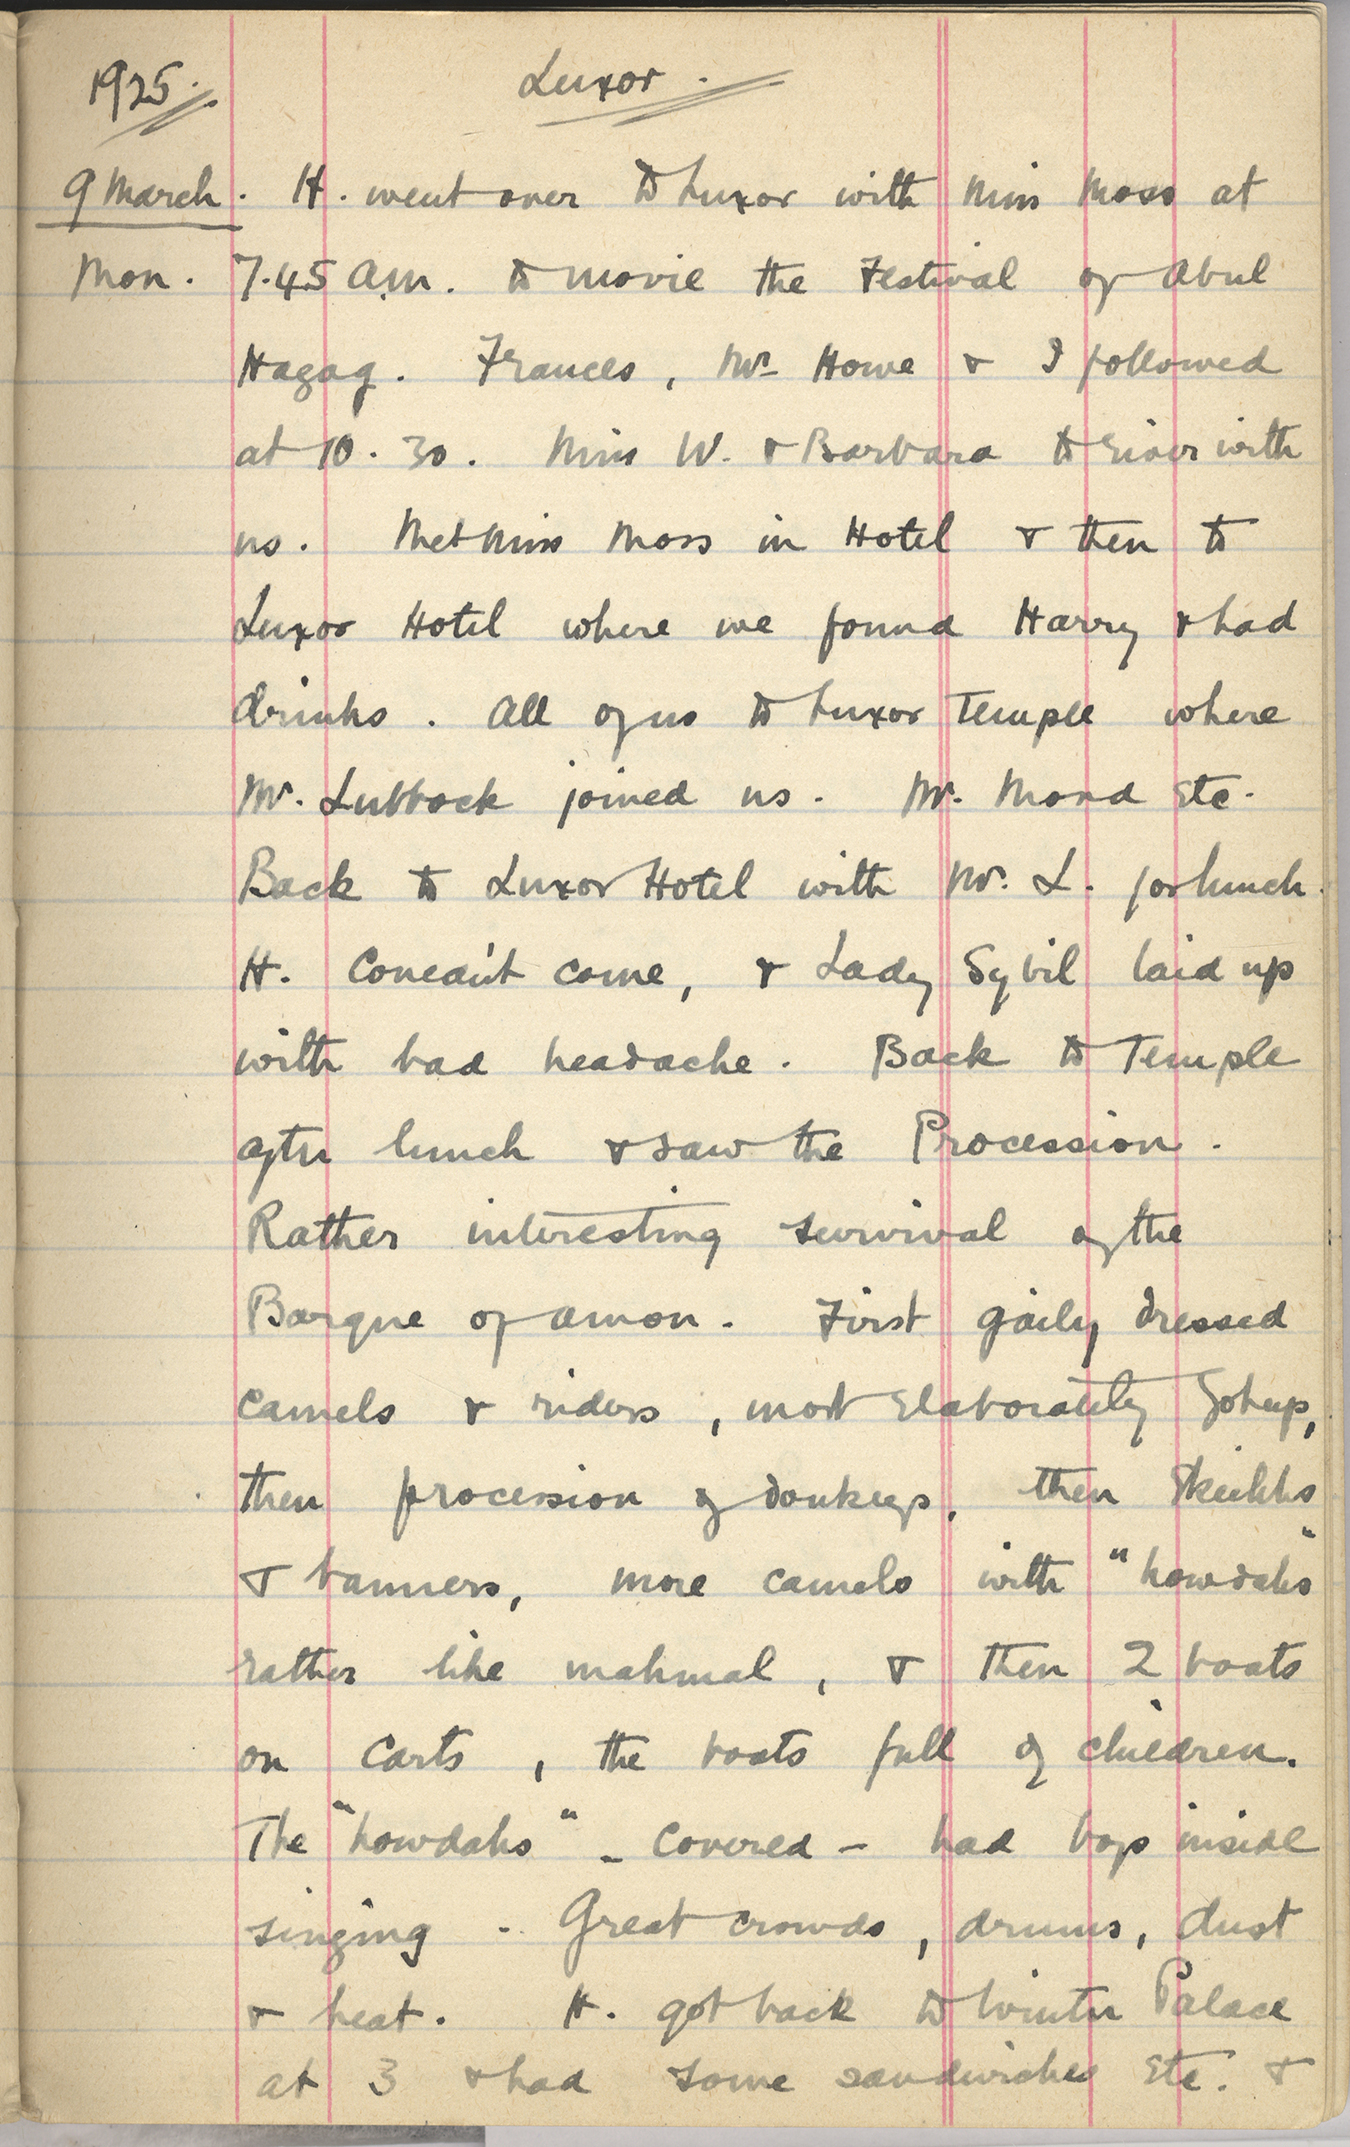 1925.
Luxor.
9 March. H. went over to Luxor with Miss Moss at
Mon. 7.45 a.m. to movie the Festival of Abul
Hagag. Frances, Mr Howe & I followed
at 10.30. Miss W. & Barbara to river with
us. Met Miss Moss in Hotel & then to
Luxor Hotel where we found Harry & had
drinks. All of us to Luxor Temple where
Mr. Lubbock joined us. Mr. Mond etc.
Back to Luxor Hotel with Mr. L. for lunch.
H. come, & Lady Sybil laid up
with bad headache. Back to Temple
after lunch & saw the Procession.
Rather interesting survival of the
Barque of Amon. First gaily dressed
camels & riders, most elaborately got up,
then procession of donkeys, then Skeikhs
& banners, more camels with "howdahs"
rather like mahmal, & then 2 boats
on carts, the boats full of children.
The "howdahs" - covered - had boys inside
singing. Great crowds, drums, dust
& heat. H. got back to Winter Palace
at 3 & had some sandwiches etc. &